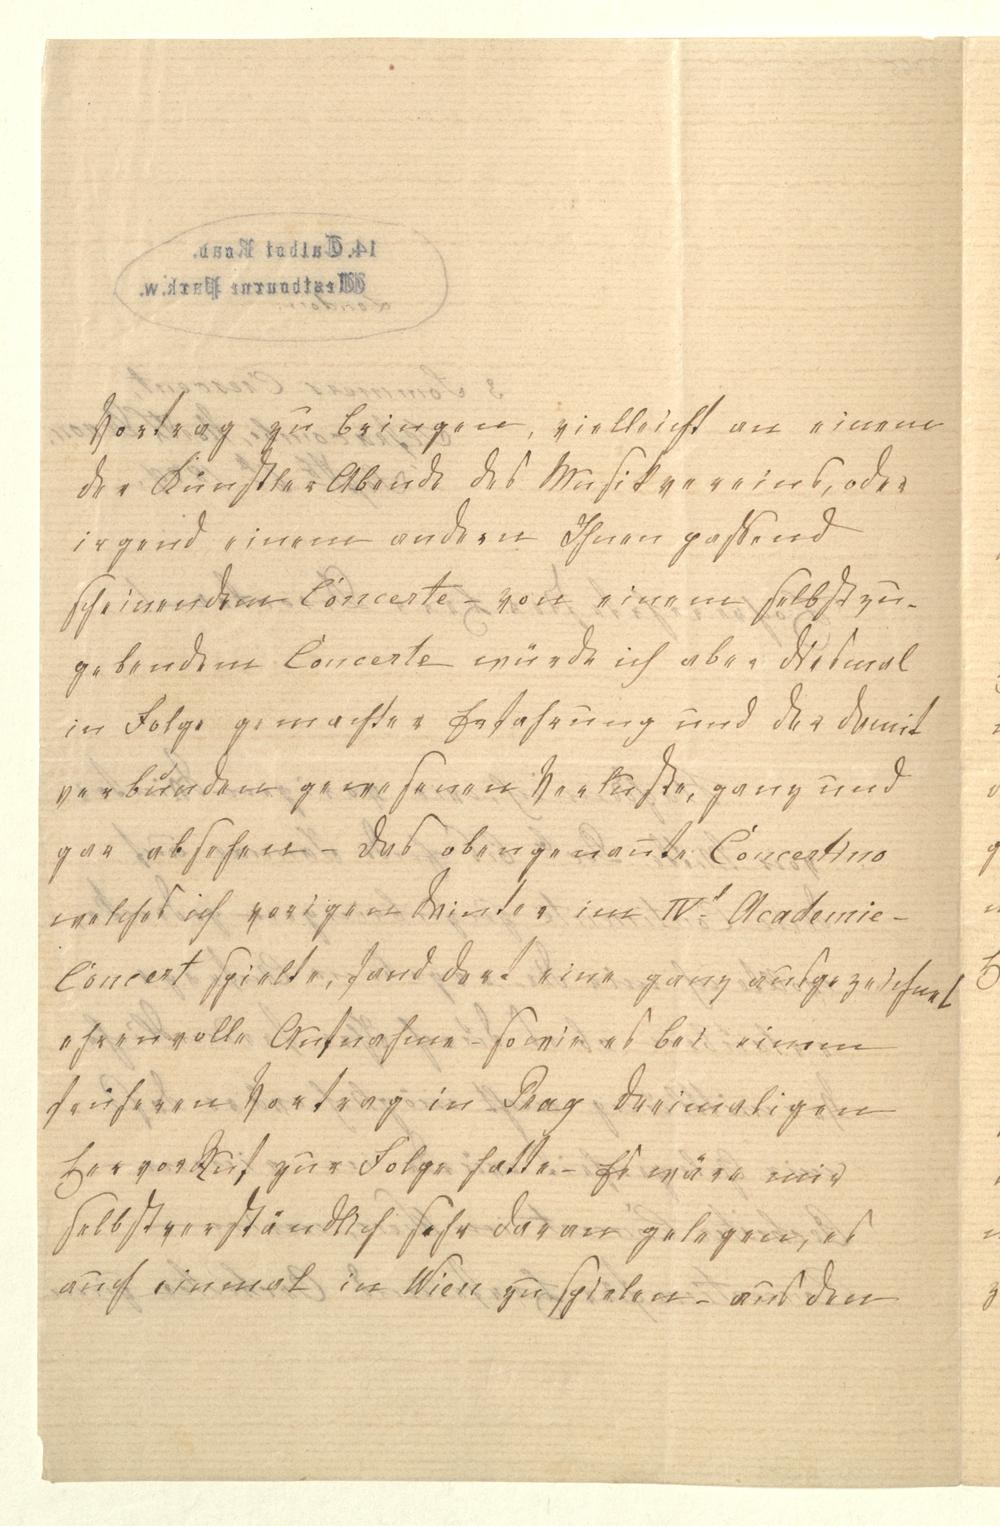 14. Talbot Road.
Westbourne Park.w.
London.
Vortrag zu bringen, vielleicht an einem
der Künstler Abende des Musikvereins, oder
irgend einem andern Ihnen passend
scheinendem Concerte – von einem selbst zu-
gebendem Concerte würde ich aber diesmal
in Folge gemachter Erfahrung und der damit
verbunden gewesenen Verluste, ganz und
gar absehen – das obengenannte Concertino
welches ich vorigen Winter im IV.t Academie-
Concert spielte, fand dort eine ganz ausgezeichnet
ehrenvolle Aufnahme – sowie es bei einem
früheren Vortrag in Prag dreimaligen
Hervorruf zur Folge hatte – Es wäre mir
selbstverständlich sehr daran gelegen, es
auch einmal in Wien zu spielen – aus den